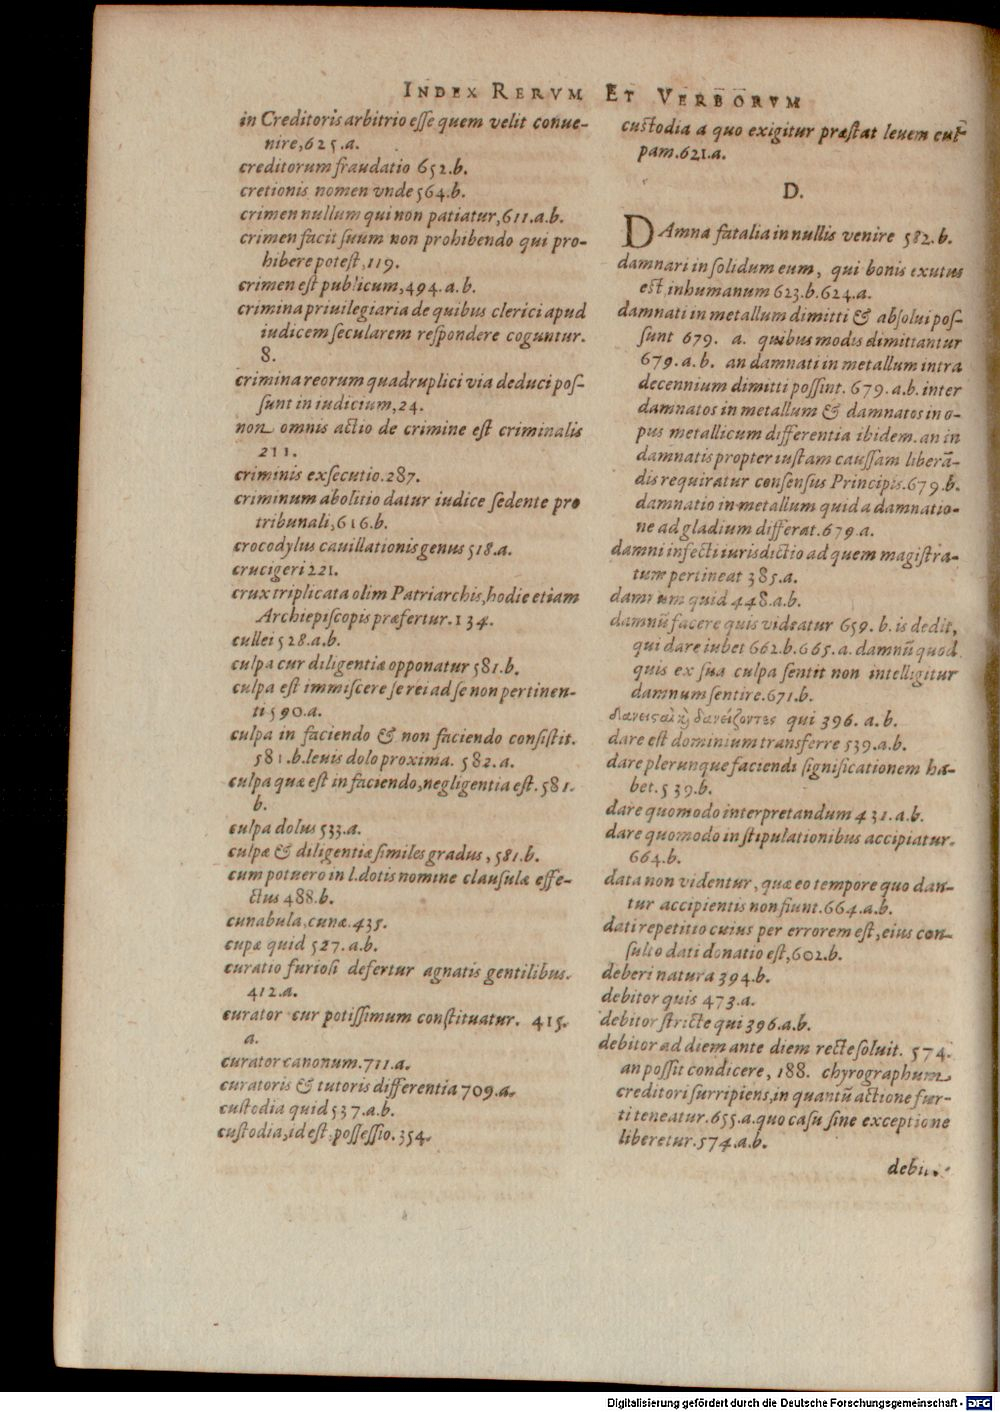 INDEX RERVM ET VERBORVM
in Creditoris arbitrio esse quem velit conue-
nire,625.a.
creditorum fraudatio 652.b.
cretionis nomen vnde 564.b.
crimen nullum qui non patiatur,611.a.b.
crimen facit suum non prohibendo qui pro-
hibere potest,119.
crimen est publicum,494.a.b.
crimina priuilegiaria de quibus clerici apud
iudicem secularem respondere coguntur.
8.
crimina reorum quadruplici via deduci pos-
sunt in iudicium,24.
non omnis actio de crimine est criminalis
211.
criminis exsecutio.287.
criminum abolitio datur iudice sedente pro
tribunali,616.b.
crocodylus cauillationis genus 518.a.
crucigeri 221.
crux triplicata olim Patriarchis,hodie etiam
Archiepiscopis præfertur.134.
cullei 528.a.b.
culpa cur diligentiæ opponatur 581.b.
culpa est immiscere se rei ad se non pertinen-
ti 590.a.
culpa in faciendo & non faciendo consistit.
581.b.leuis dolo proxima. 582.a.
culpa quæ est in faciendo,negligentia est.581.
b.
culpa dolus 533.a.
culpæ & diligentiæ similes gradus,581.b.
cum potuero in l.dotis nomine clausulæ effe-
ctus 488.b.
cunabula,cunæ.435.
cupæ quid 527.a.b.
curatio furiosi defertur agnatis gentilibus.
412.a.
curator cur potissimum constituatur. 415.
a.
curator canonum.711.a.
curatoris & tutoris differentia 709.a.
custodia quid 537.a.b.
custodia,id est,possessio.354.
custodia a quo exigitur præstat leuem cul-
pam.621.a.
D.
DAmna fatalia in nullis venire 582.b.
damnari in solidum eum, qui bonis exutus
est,inhumanum 623.b.624.a.
damnati in metallum dimitti & absolui pos-
sunt 679. a. quibus modis dimittantur
679.a.b. an damnati in metallum intra
decennium dimitti possint.679.a.b.inter
damnatos in metallum & damnatos in o-
pus metallicum differentia ibidem.an in
damnatis propter iustam caussam liberã-
dis requiratur consensus Principis.679.b.
damnatio in metallum quid a damnatio-
ne ad gladium differat.679.a.
damni infecti iurisdictio ad quem magistra-
tum pertineat 385.a.
damnum quid 448.a.b.
damnũ facere quis videatur 659.b.is dedit,
qui dare iubet 662.b.665.a.damnũ quod
quis ex sua culpa sentit non intelligitur
damnum sentire.671.b.
δανεισαὶ κὶ δανείζοντες qui 396. a.b.
dare est dominium transferre 539.a.b.
dare plerunque faciendi significationem ha-
bet.539.b.
dare quomodo interpretandum 431.a.b.
dare quomodo in stipulationibus accipiatur.
664.b.
data non videntur,quæ eo tempore quo dan-
tur accipientis non fiunt.664.a.b.
dati repetitio cuius per errorem est,eius con-
sulto dati donatio est,602.b.
deberi natura 394.b.
debitor quis 473.a.
debitor stricte qui 396.a.b.
debitor ad diem ante diem recte soluit. 574.
an possit condicere,188. chyrographum
creditori surripiens,in quantũ actione fur-
ti teneatur.655.a.quo casu sine exceptione
liberetur.574.a.b.
Digitalisierung gefördert durch die Deutsche Forschungsgemeinschaft - DFG